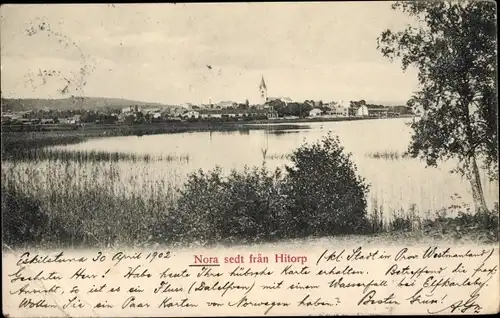 Nora sedt från Hitorp
Eskilstuna 30 April 1902
(kl. Stadt in Prov Westmanland)
Geehrter Herr! Habe Ihre hübsche Karte erhalten. Betreffend die frag.
Ansicht, so ist es ein Fluss (Dalelfven) mit einem Wasserfall bei Elfkarleby.
Wollen Sie ein Paar Karten von Norwegen haben? Besten Gruss!